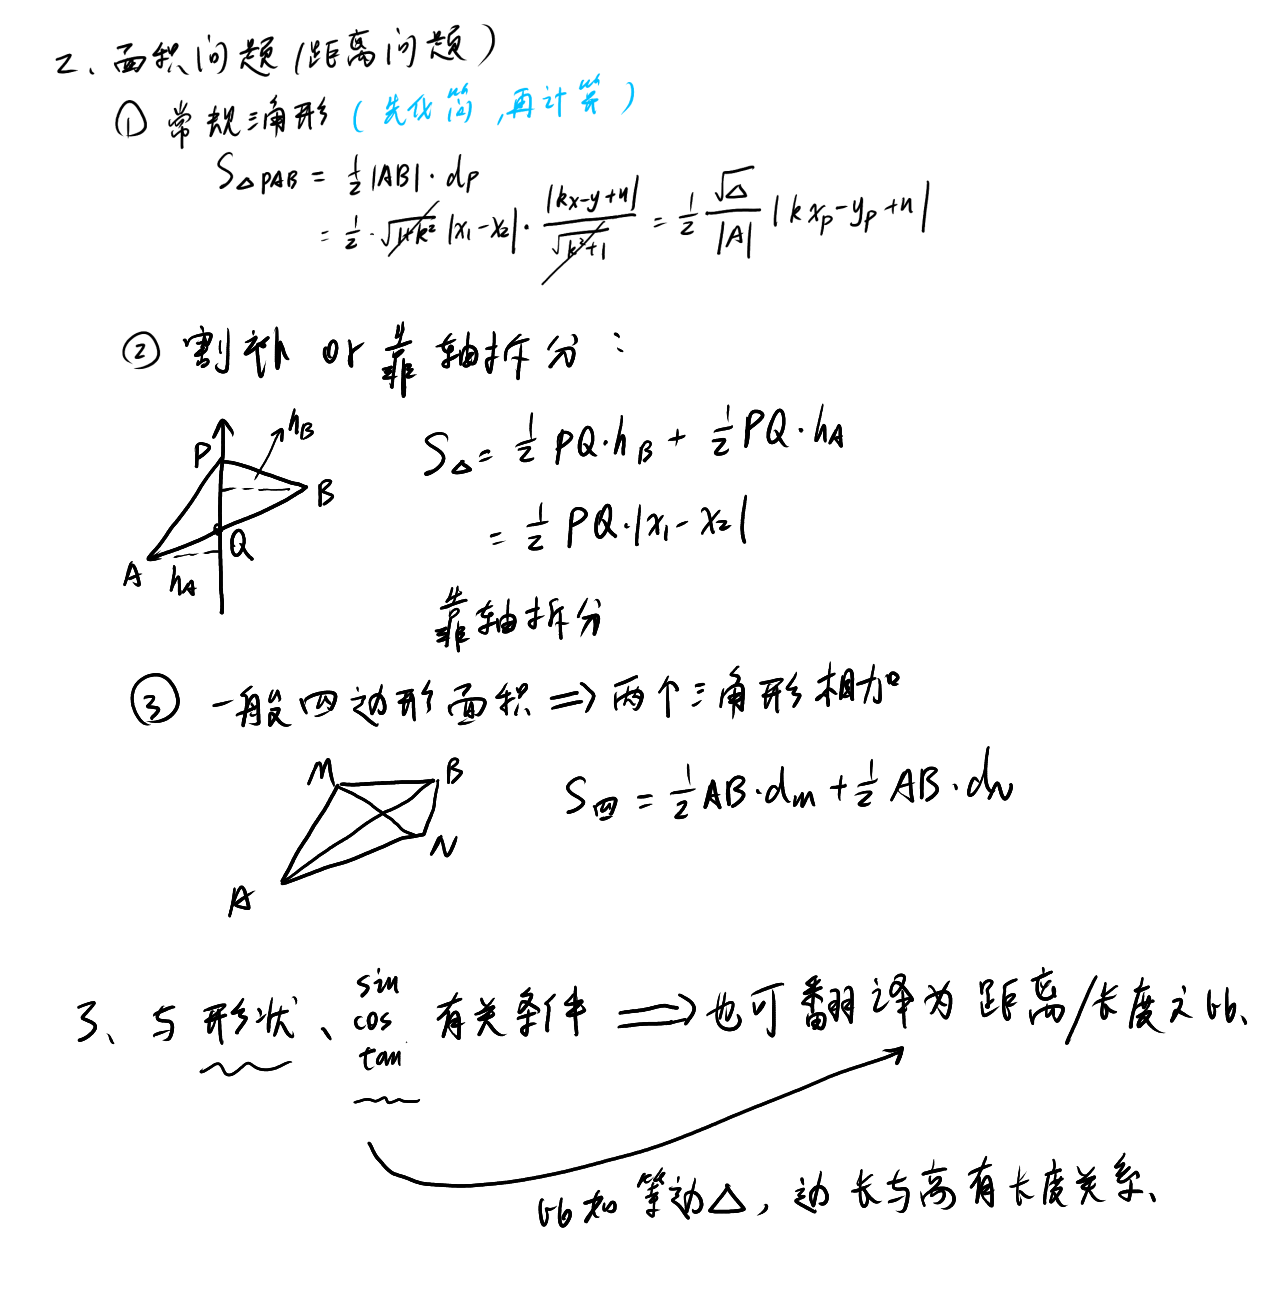 2、面积问题(距离问题)
① 常规三角形(先化简,再计算)
S△PAB = ½|AB|·dp
= ½·√(1+k²) |x₁-x₂|·|kx-y+n|/√(k²+1) = ½ √△/|A| |kxp-yp+n|
② 割补 or 靠轴拆分:
P
hB
B
Q
A
hA
S△ = ½ PQ·hB + ½ PQ·hA
= ½ PQ·|x₁-x₂|
靠轴拆分
③ 一般四边形面积 ⇒ 两个三角形相加
M
B
N
A
S四 = ½ AB·dm + ½ AB·dN
3、与形状、sin cos tan 有关条件 ⟹ 也可翻译为 距离/长度之比、
比如 等边△, 边长与高有长度关系、